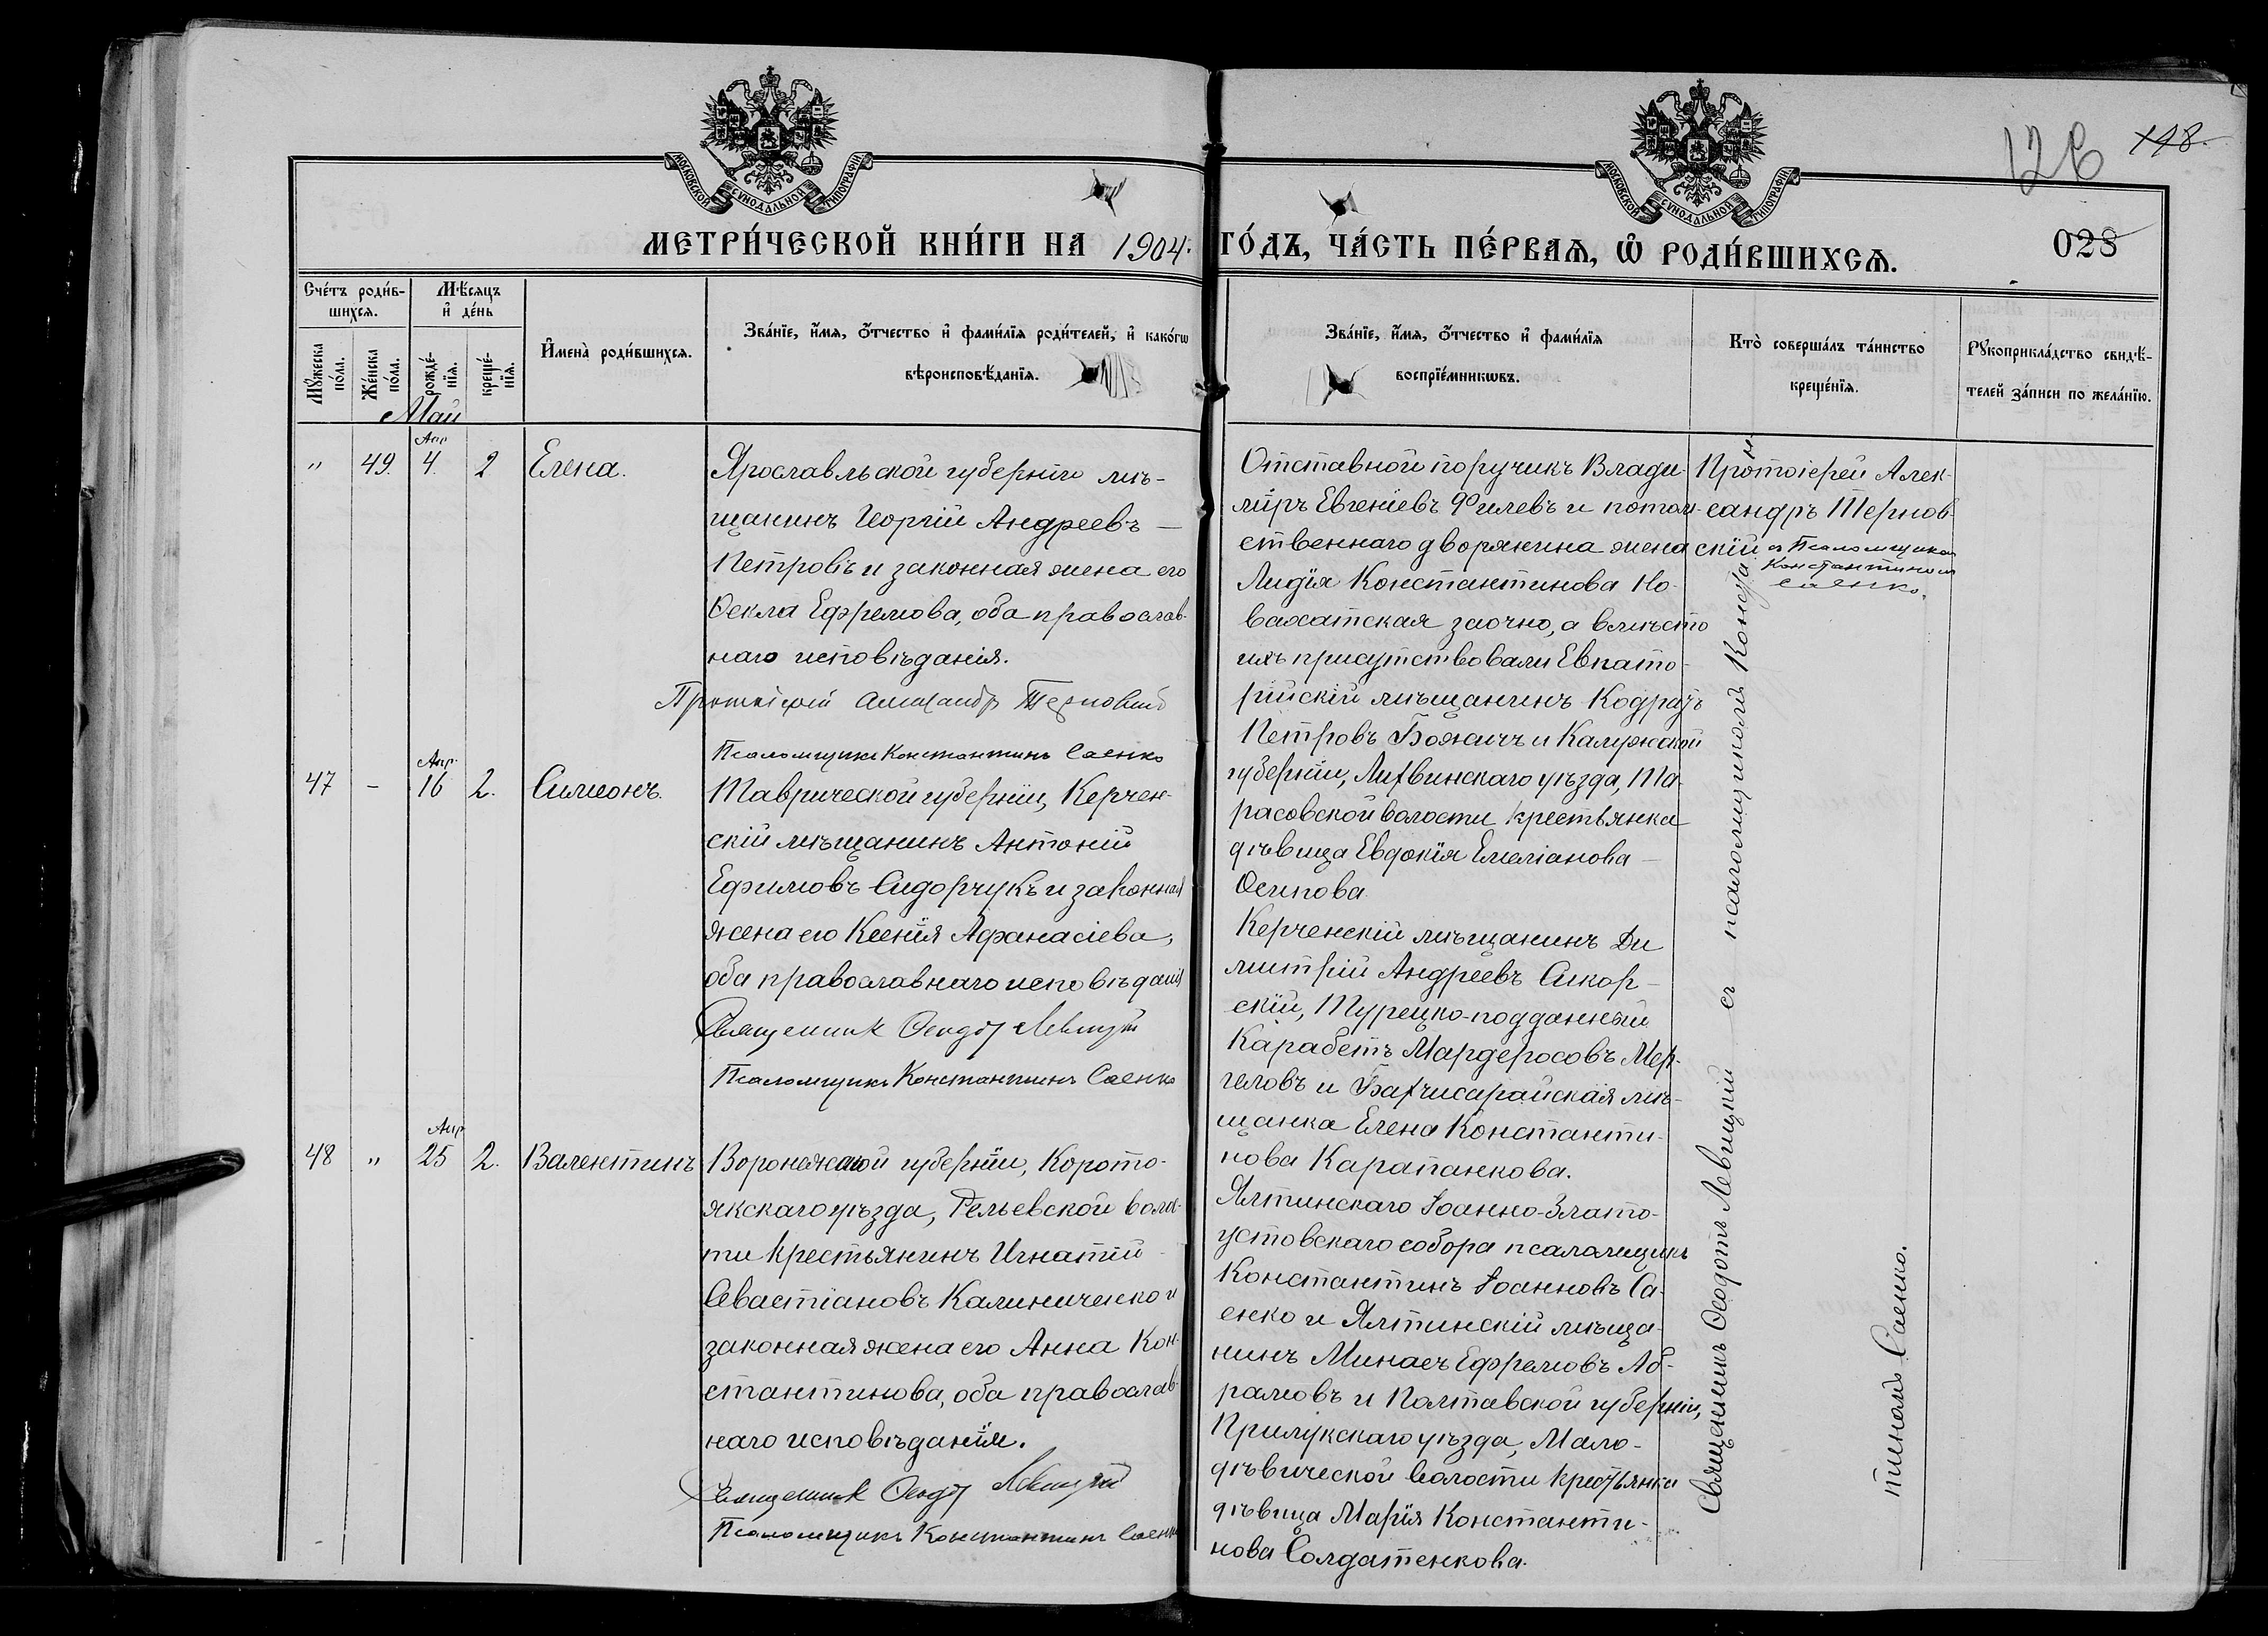 128 118.
МОСКОВСКОЙ СѴНОДАЛЬНОЙ ТИПОГРАФІИ
МОСКОВСКОЙ СѴНОДАЛЬНОЙ ТИПОГРАФІИ
МЕТРИ́ЧЕСКОЙ КНИ́ГИ НА 1904. ГО́ДЪ, ЧА́СТЬ ПЕ́РВАѦ, Ѡ РОДИ́ВШИХСѦ.
028
Сче́тъ роди́в-
шихсѧ.
Мѣ́сѧцъ
и҆ де́нь
Мꙋ́жеска
по́ла.
Же́нска
по́ла.
рожде́-
нїѧ.
креще́-
нїѧ.
И҆мена̀ роди́вшихсѧ.
Зва́нїе, и҆́мѧ, ѻ҆́тчество и҆ фами́лїѧ роди́телей, и҆ како́гѡ
вѣроисповѣ́данїѧ.
Зва́нїе, и҆́мѧ, ѻ҆́тчество и҆ фами́лїѧ
воспрїе́мникѡвъ.
Кто̀ соверша́лъ та́инство
креще́нїѧ.
Рꙋкоприкла́дство свидѣ́-
телей за́писи по жела́нїю.
Май
" 49. Апр. 4. 2 Елена.
Ярославльской губерніи мѣ-
щанинъ Георгій Андреевъ —
Петровъ и законная жена его
Ѳекла Ефремова, оба православ-
наго исповѣданія.
Протоіерей Александръ Терновскій
Псаломщикъ Константинъ Саенко
Отставной поручикъ Влади-
міръ Евгеніевъ Филевъ и потом-
ственнаго дворянина жена
Лидія Константинова Но-
вахатская заочно, а вмѣсто
ихъ присутствовали Евпато-
рійскій мѣщанинъ Кодратъ
Петровъ Божичъ и Калужской
губерніи, Лихвинскаго уѣзда, Та-
расовской волости крестьянка
дѣвица Евдокія Емеліанова —
Осипова.
Протоіерей Алек-
сандръ Тернов-
скій съ Псаломщикомъ
Константиномъ
Саенко.
47 - Апр. 16 2. Симеонъ.
Таврической губерніи, Керчен-
скій мѣщанинъ Антоній
Ефимовъ Сидорчукъ и законная
жена его Ксенія Афанасіева,
оба православнаго исповѣданія
Священникъ Ѳеодотъ Левицкій
Псаломщикъ Константинъ Саенко
Керченскій мѣщанинъ Ди
митрій Андреевъ Сикор-
скій, Турецко-подданный
Карабетъ Мардеросовъ Мер-
геловъ и Бахчисарайская мѣ-
щанка Елена Константи-
нова Карапанкова.
48 " Апр 25 2. Валентинъ
Воронежской губерніи, Корото-
якскаго уѣзда, волос-
ти крестьянинъ Игнатій
Севастіановъ Калиниченко и
законная жена его Анна Кон-
стантинова, оба православ-
наго исповѣданія.
Священникъ Ѳеодотъ Левицкій
Псаломщикъ Константинъ Саенко
Ялтинскаго Іоанно-Злато-
устовскаго собора псаломщикъ
Константинъ Іоанновъ Са-
енко и Ялтинскій мѣща-
нинъ Минаеъ Ефремовъ Аб-
рамовъ и Полтавской губерніи,
Прилукскаго уѣзда, Мало-
дѣвической волости крестьянка
дѣвица Марія Константи-
нова Солдатенкова.
Священникъ Ѳеодотъ Левицкій съ псаломщикомъ Констан
тиномъ Саенко.